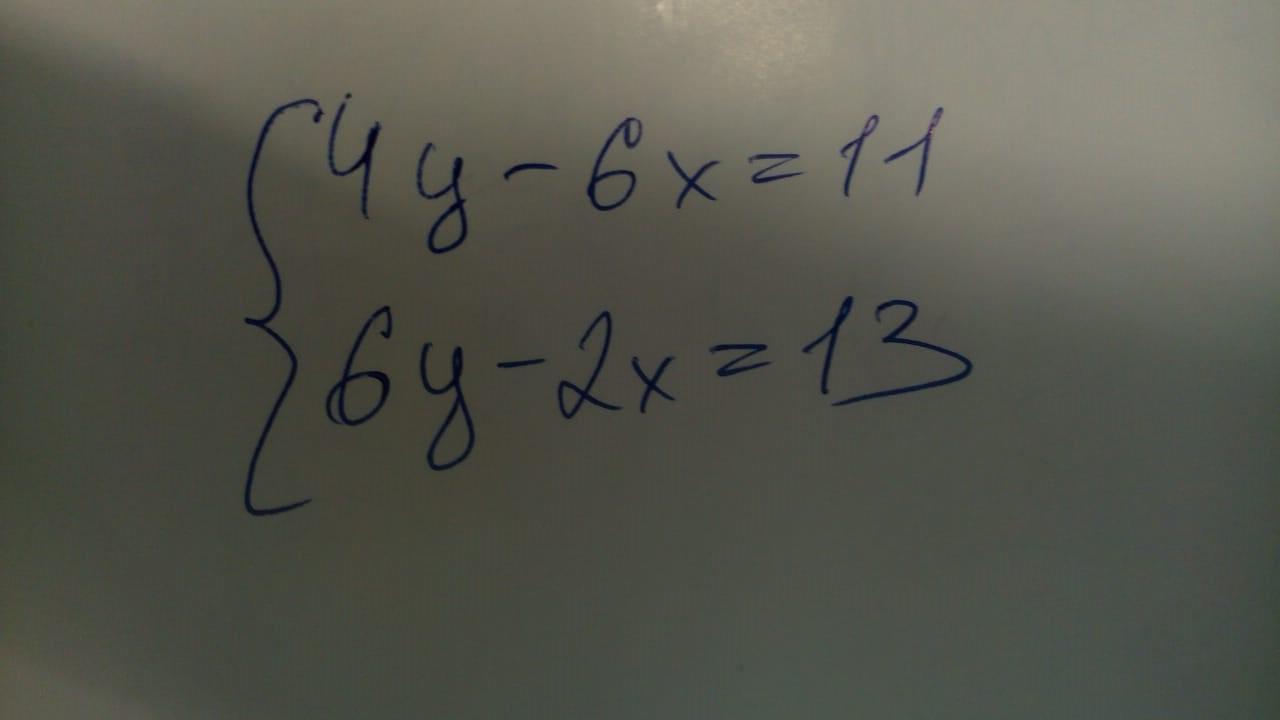 4y - 6x = 11
6y - 2x = 13